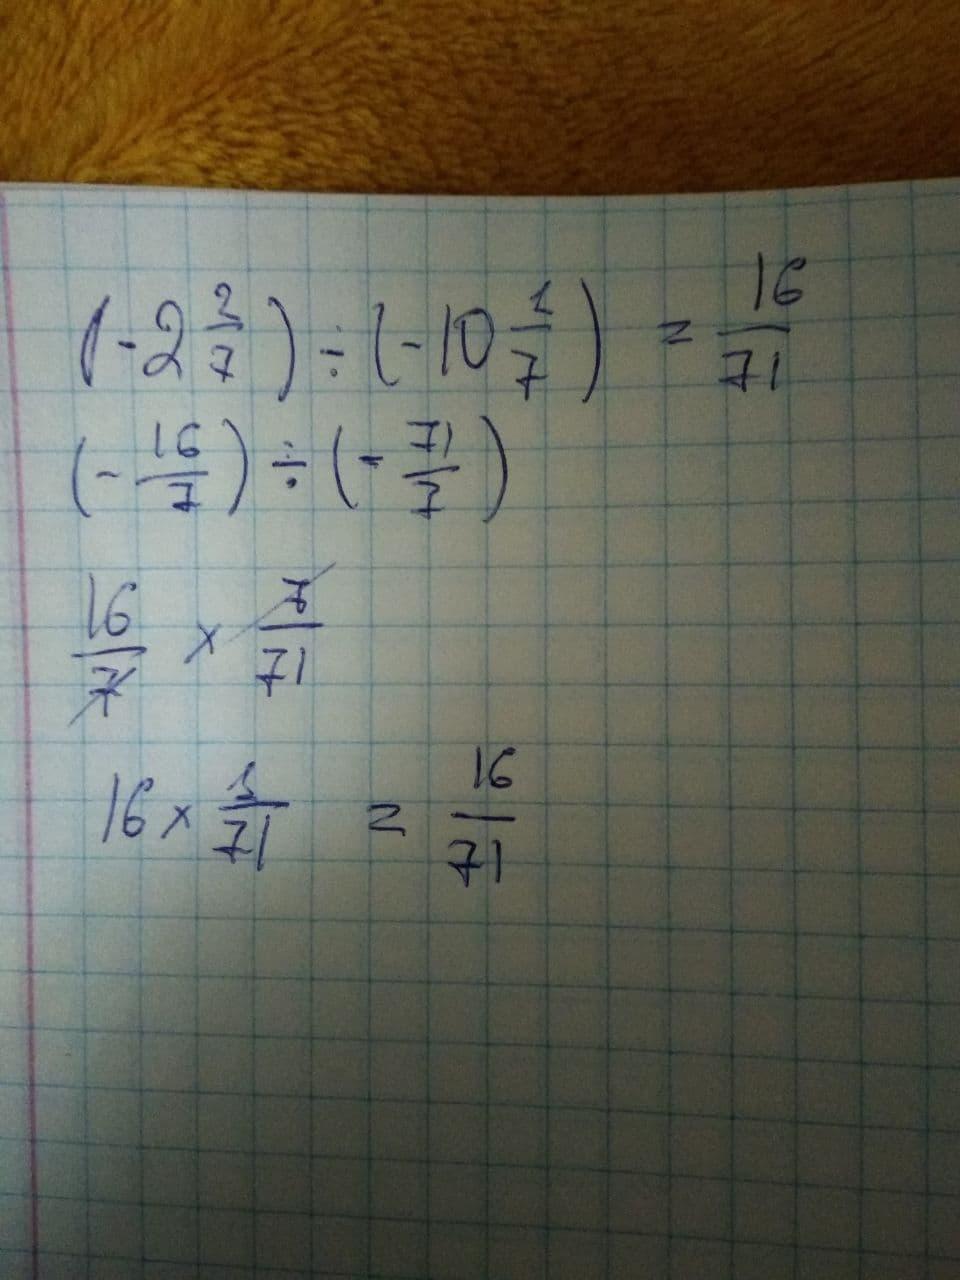 (-2 2/7) ÷ (-10 1/7) = 16/71
(-16/7) ÷ (-71/7)
16/7 × 7/71
16 × 1/71 = 16/71